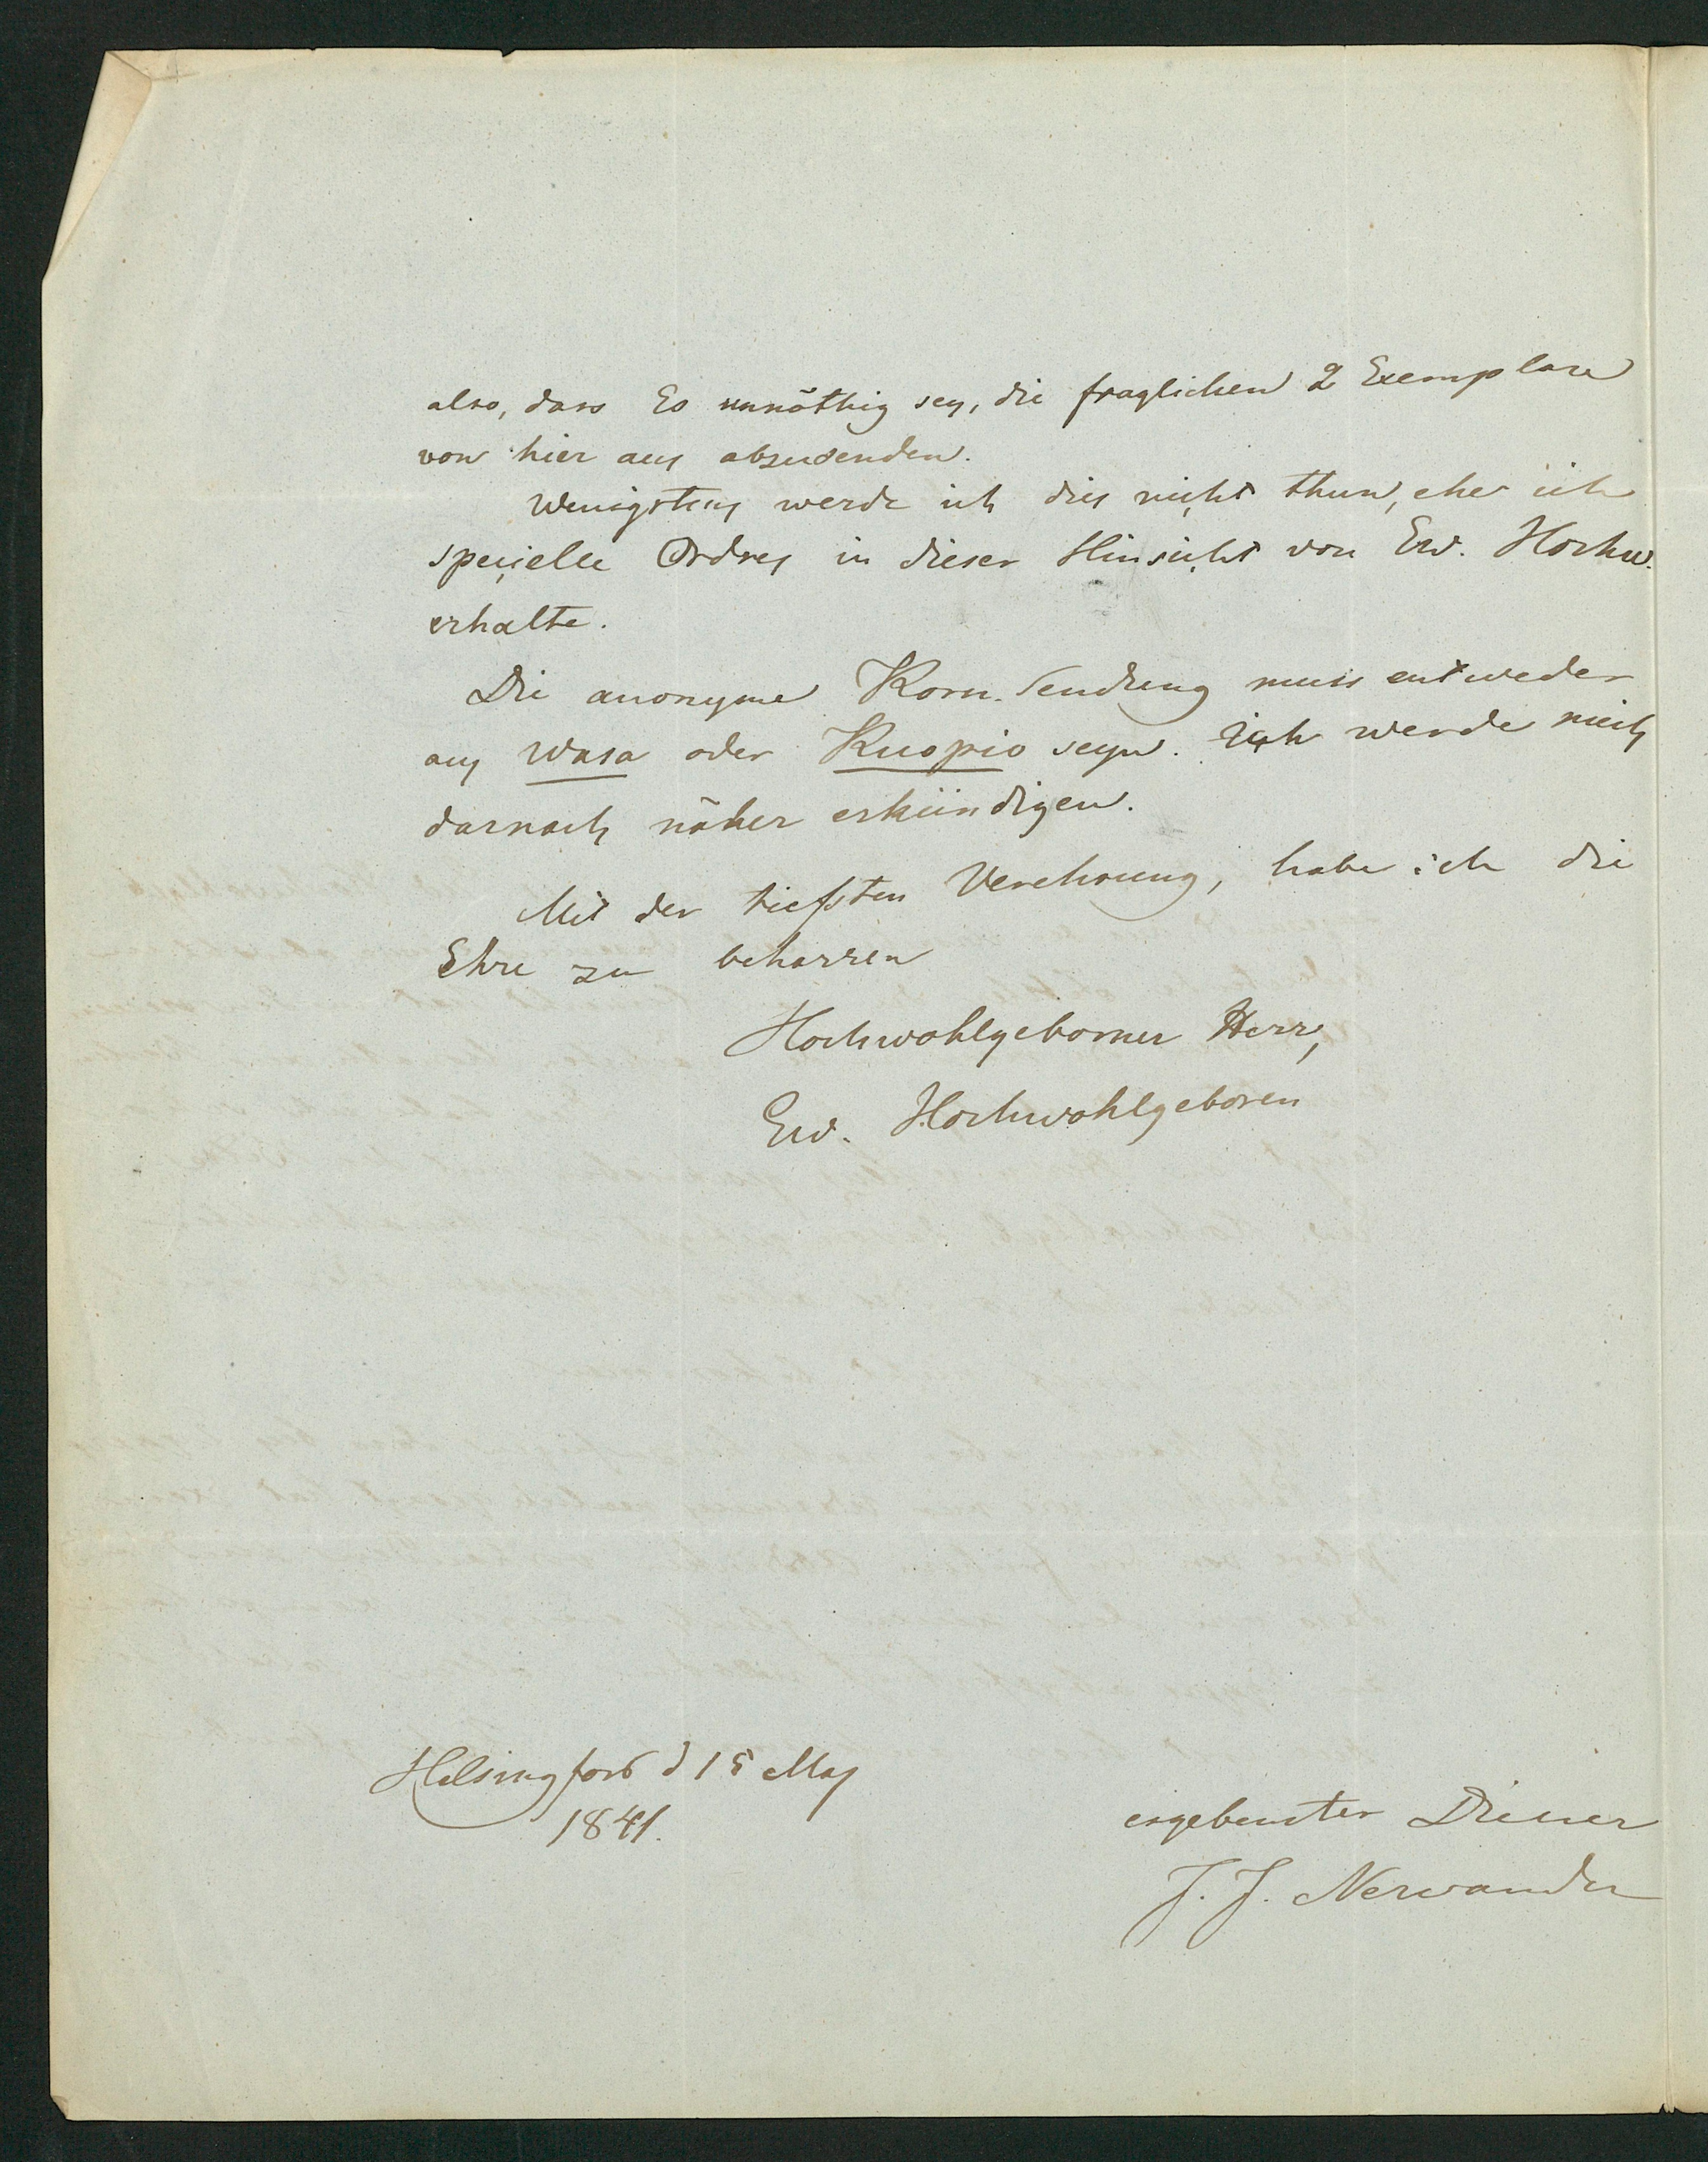 also, dass Es unnöthig sey, die fraglichen 2 Exemplare
von hier aus abzusenden.
Wenigstens werde ich dies nicht thun, eher ich
specielle Ordres in dieser Hinsicht von Ew. Hochw.
erhalte.
Die anonyme Korn-Sendung muss entweder
aus Wasa oder Kuopio seyn. Ich werde mich
darnach näher erkündigen.
Mit der tiefsten Verehrung, habe ich die
Ehre zu beharren
Hochwohlgeborner Herr,
Ew. Hochwohlgeboren
Helsingfors d 15 May
1841.
ergebenster Diener
J. J. Nervander